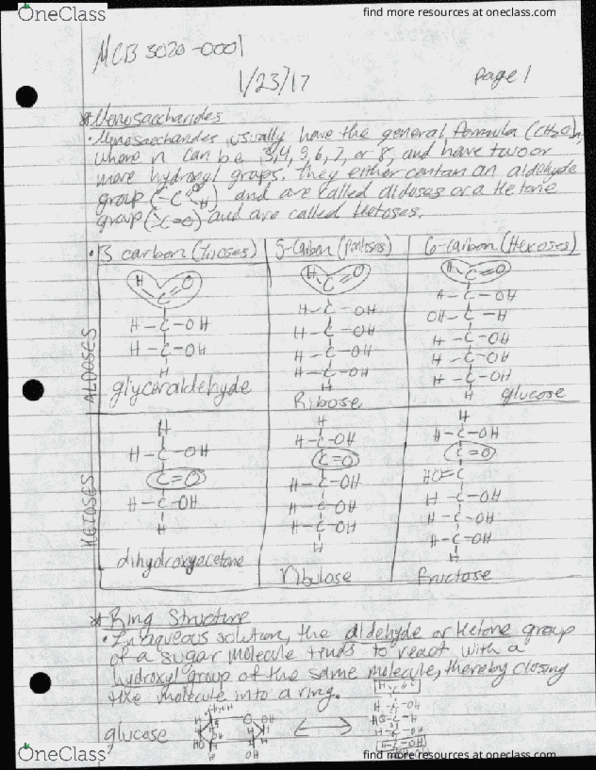 OneClass
find more resources at oneclass.com
MCB 3020-0001
1/23/17
page 1
* Monosaccharides
• Monosaccharides usually have the general formula (CH2O)n,
where n can be 3,4,5,6,7, or 8, and have two or
more hydroxyl groups. They either contain an aldehyde
group (-C=O H) and are called aldoses or a ketone
group (C=O) and are called Ketoses.
• 3 carbon (Trioses) 5-carbon (pentoses) 6-carbon (Hexoses)
ALDOSES
H C=O H C=O H C=O
H-C-OH H-C-OH H-C-OH
H-C-OH H-C-OH OH-C-H
H H-C-OH H-C-OH
H-C-OH H-C-OH
H H-C-OH
H
glyceraldehyde Ribose glucose
KETOSES
H H H
H-C-OH H-C-OH H-C-OH
C=O C=O C=O
H-C-OH H-C-OH HO=C
H H-C-OH H-C-OH
H-C-OH H-C-OH
H H-C-OH
H
dihydroxyacetone ribulose fructose
* Ring Structure
• In aqueous solution, the aldehyde or ketone group
of a sugar molecule tends to react with a
hydroxyl group of the same molecule, thereby closing
the molecule into a ring.
glucose
OneClass
find more resources at oneclass.com